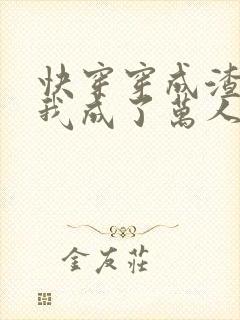 快穿穿成渣
我成了萬人
金友莊